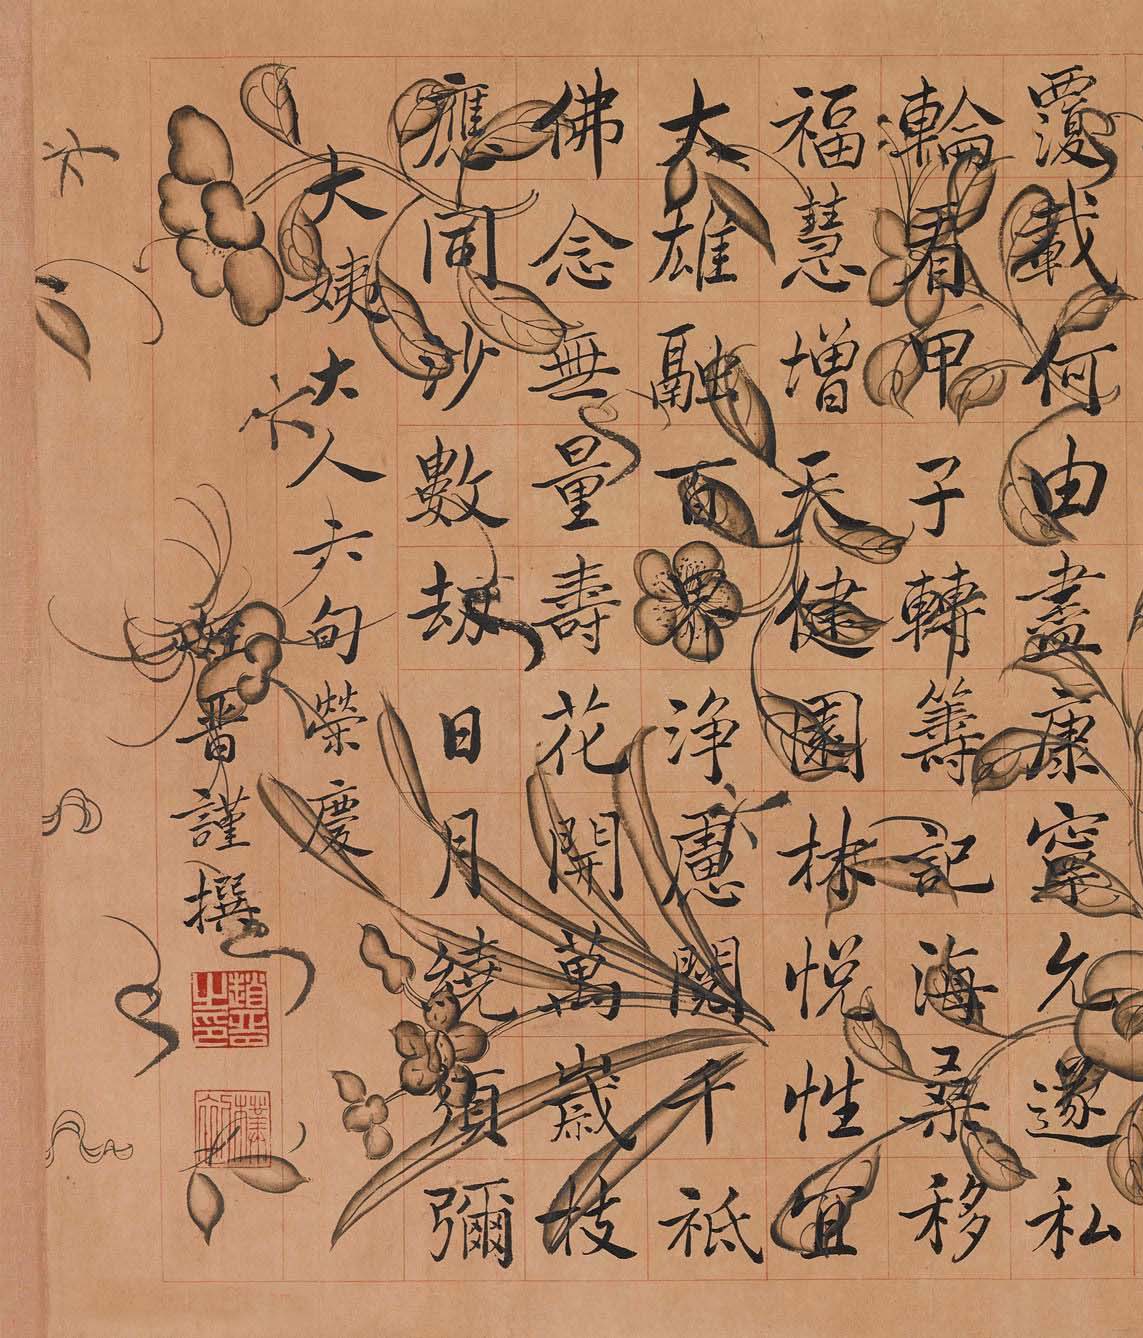 覆載何由盡康寧允遂私
輪看甲子轉籌記海桑移
福慧增天健園林悅性宜
大雄融百界淨慮關千祇
佛念無量壽花開萬歲枝
應同沙數劫日月繞須彌
大姨大人六旬榮慶
姪晉謹撰